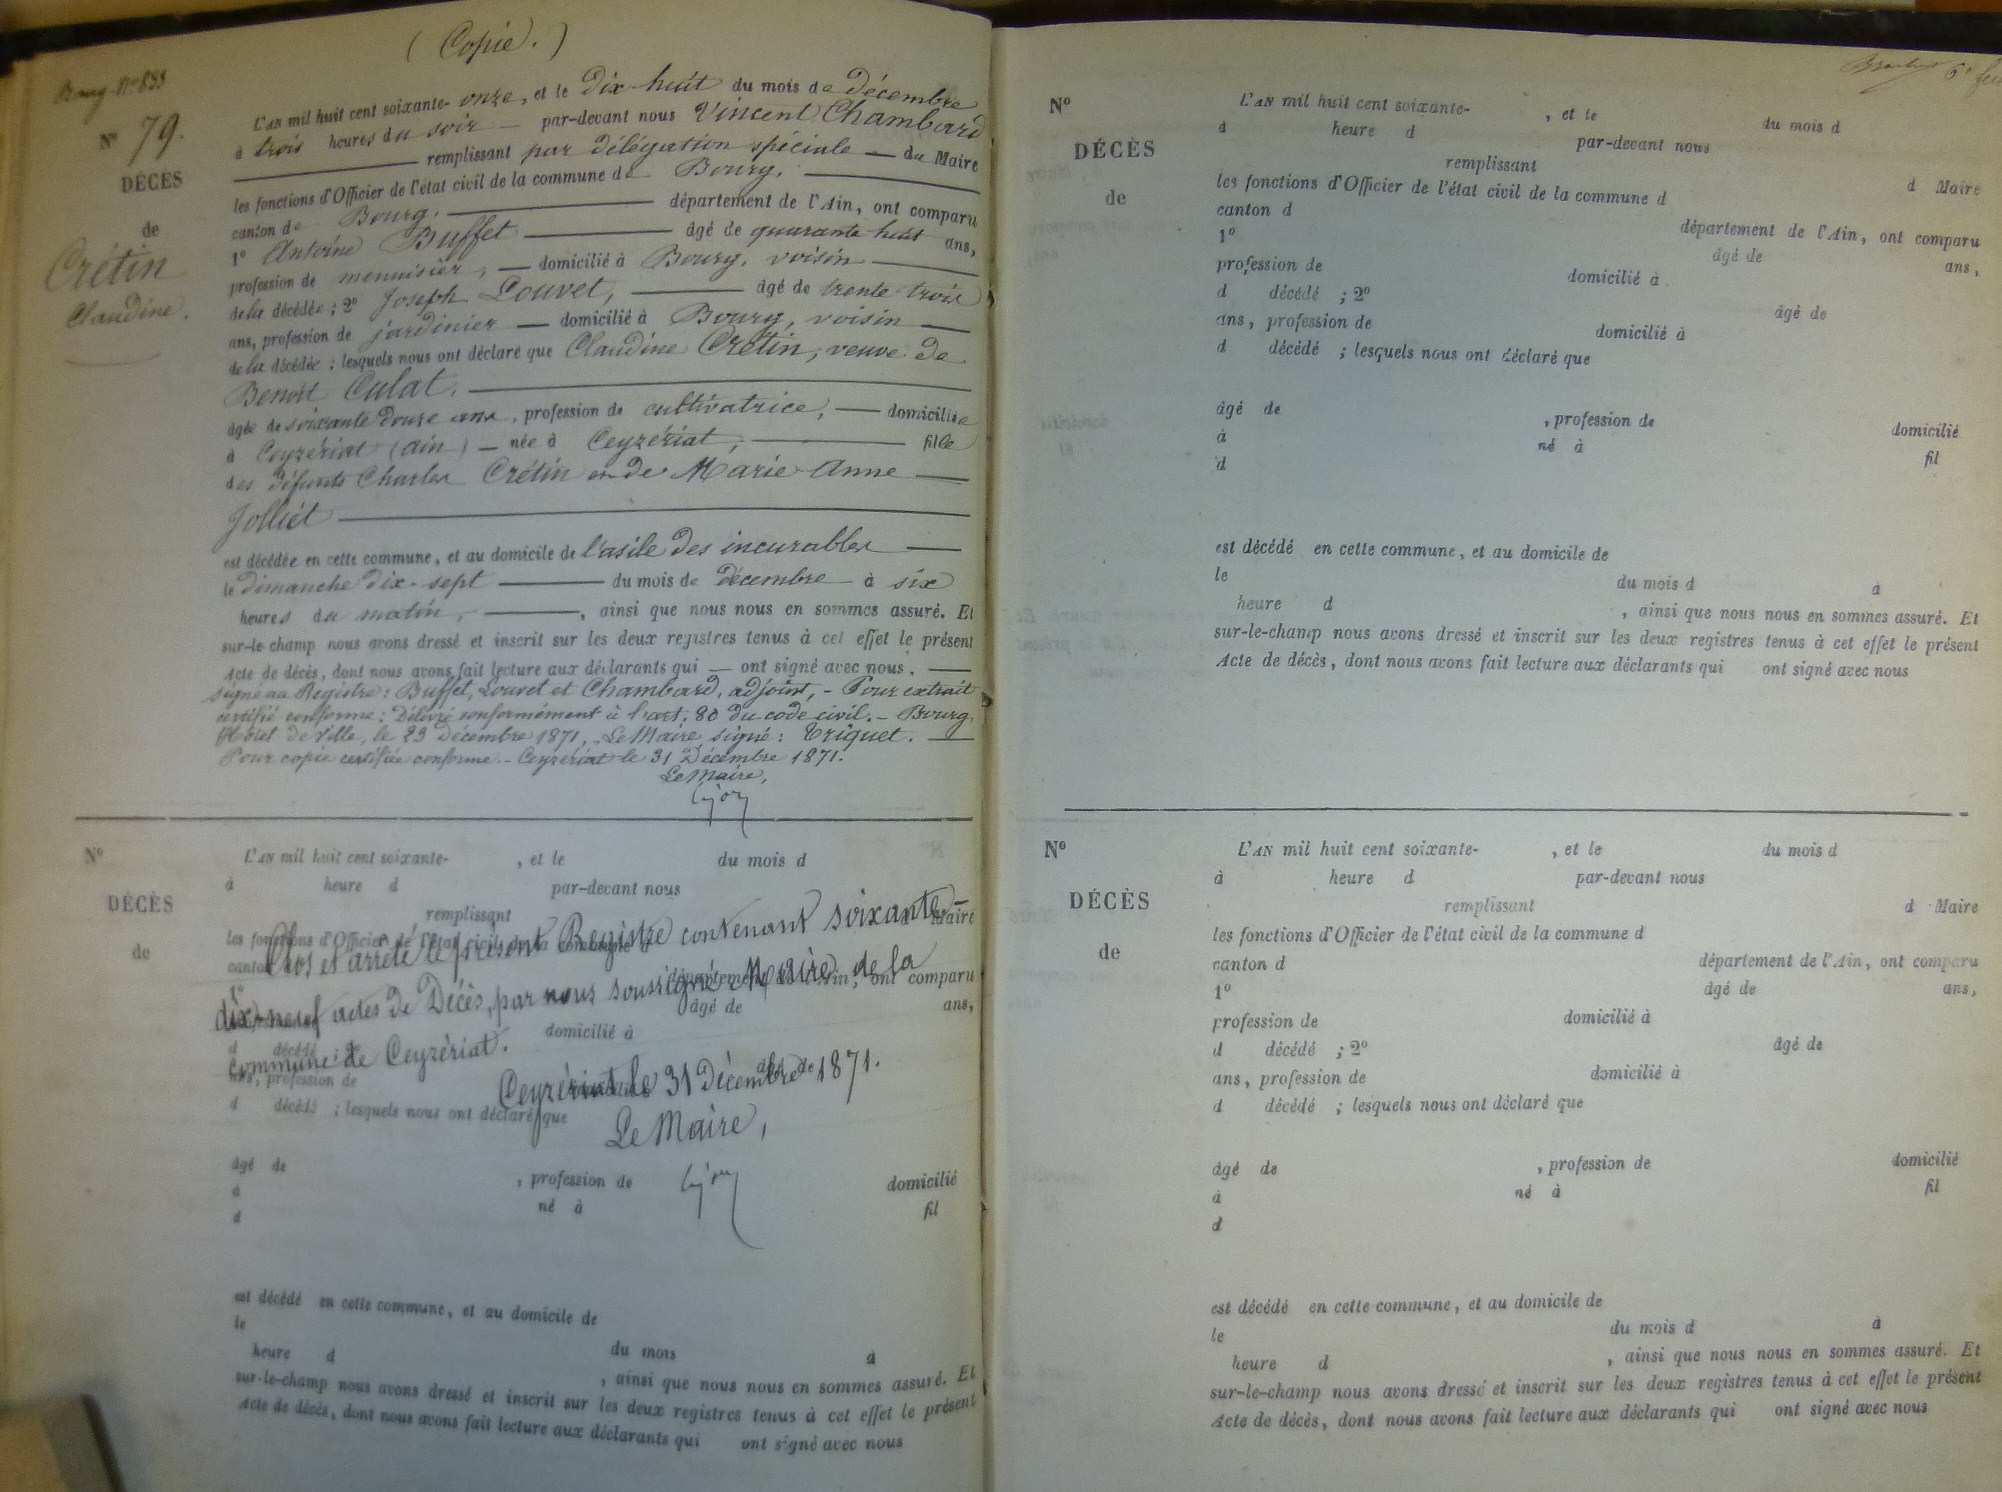 ( Copie. )
Bourg Nº 653
Nº 79.
DÉCÈS
de
Crétin
Claudine.
L'AN mil huit cent soixante-onze, et le Dix-huit du mois de Décembre
à trois heures du soir — par-devant nous Vincent Chambard
remplissant par délégation spéciale — du Maire
les fonctions d'Officier de l'état civil de la commune de Bourg.
canton de Bourg. département de l'Ain, ont comparu
1º Antoine Buffet âgé de quarante huit ans,
profession de menuisier, — domicilié à Bourg, voisin
de la décédée ; 2º Joseph Louvet, âgé de trente trois
ans, profession de jardinier — domicilié à Bourg, voisin
de la décédée ; lesquels nous ont déclaré que Claudine Crétin, veuve de
Benoît Culat.
âgée de soixante douze ans, profession de cultivatrice, — domiciliée
à Ceyzériat (Ain) — née à Ceyzériat, fille
des défunts Charles Crétin et de Marie-Anne
Jolliet
est décédée en cette commune, et au domicile de l'asile des incurables
le dimanche dix-sept du mois de décembre à six
heures du matin, , ainsi que nous nous en sommes assuré. Et
sur-le-champ nous avons dressé et inscrit sur les deux registres tenus à cet effet le présent
Acte de décès, dont nous avons fait lecture aux déclarants qui — ont signé avec nous.
Signé au Registre : Buffet, Louvet et Chambard, adjoint, - Pour extrait
certifié conforme : Délivré conformément à l'art. 80 du code civil. - Bourg,
Hôtel de Ville, le 23 Décembre 1871. Le Maire signé : Triquet.
Pour copie certifiée conforme. - Ceyzériat le 31 Décembre 1871.
Le Maire,
Nº
DÉCÈS
de
L'AN mil huit cent soixante- , et le du mois d
à heure d par-devant nous
remplissant Maire
les fonctions d'Officier de l'état civil de la commune d
canton département de l'Ain, ont comparu
1º âgé de ans,
domicilié à
d décédé ; 2º âgé de
ans, profession de
d décédé ; lesquels nous ont déclaré que
Clos et arrêté le présent Registre contenant soixante-
dix-neuf actes de Décès, par nous soussigné Maire de la
commune de Ceyzériat.
Ceyzériat le 31 Décembre 1871.
Le Maire,
âgé de , profession de domicilié
à né à fil
d
est décédé en cette commune, et au domicile de
le du mois à
heure d , ainsi que nous nous en sommes assuré. Et
sur-le-champ nous avons dressé et inscrit sur les deux registres tenus à cet effet le présent
Acte de décès, dont nous avons fait lecture aux déclarants qui ont signé avec nous
Nº
DÉCÈS
de
L'AN mil huit cent soixante- , et le du mois d
à heure d par-devant nous
remplissant d Maire
les fonctions d'Officier de l'état civil de la commune d
canton d département de l'Ain, ont comparu
1º âgé de ans,
profession de domicilié à
d décédé ; 2º âgé de
ans, profession de domicilié à
d décédé ; lesquels nous ont déclaré que
âgé de , profession de domicilié
à né à fil
d
est décédé en cette commune, et au domicile de
le du mois d à
heure d , ainsi que nous nous en sommes assuré. Et
sur-le-champ nous avons dressé et inscrit sur les deux registres tenus à cet effet le présent
Acte de décès, dont nous avons fait lecture aux déclarants qui ont signé avec nous
Nº
DÉCÈS
de
L'AN mil huit cent soixante- , et le du mois d
à heure d par-devant nous
remplissant d Maire
les fonctions d'Officier de l'état civil de la commune d
canton d département de l'Ain, ont comparu
1º âgé de ans,
profession de domicilié à
d décédé ; 2º âgé de
ans, profession de domicilié à
d décédé ; lesquels nous ont déclaré que
âgé de , profession de domicilié
à né à fil
d
est décédé en cette commune, et au domicile de
le du mois d à
heure d , ainsi que nous nous en sommes assuré. Et
sur-le-champ nous avons dressé et inscrit sur les deux registres tenus à cet effet le présent
Acte de décès, dont nous avons fait lecture aux déclarants qui ont signé avec nous